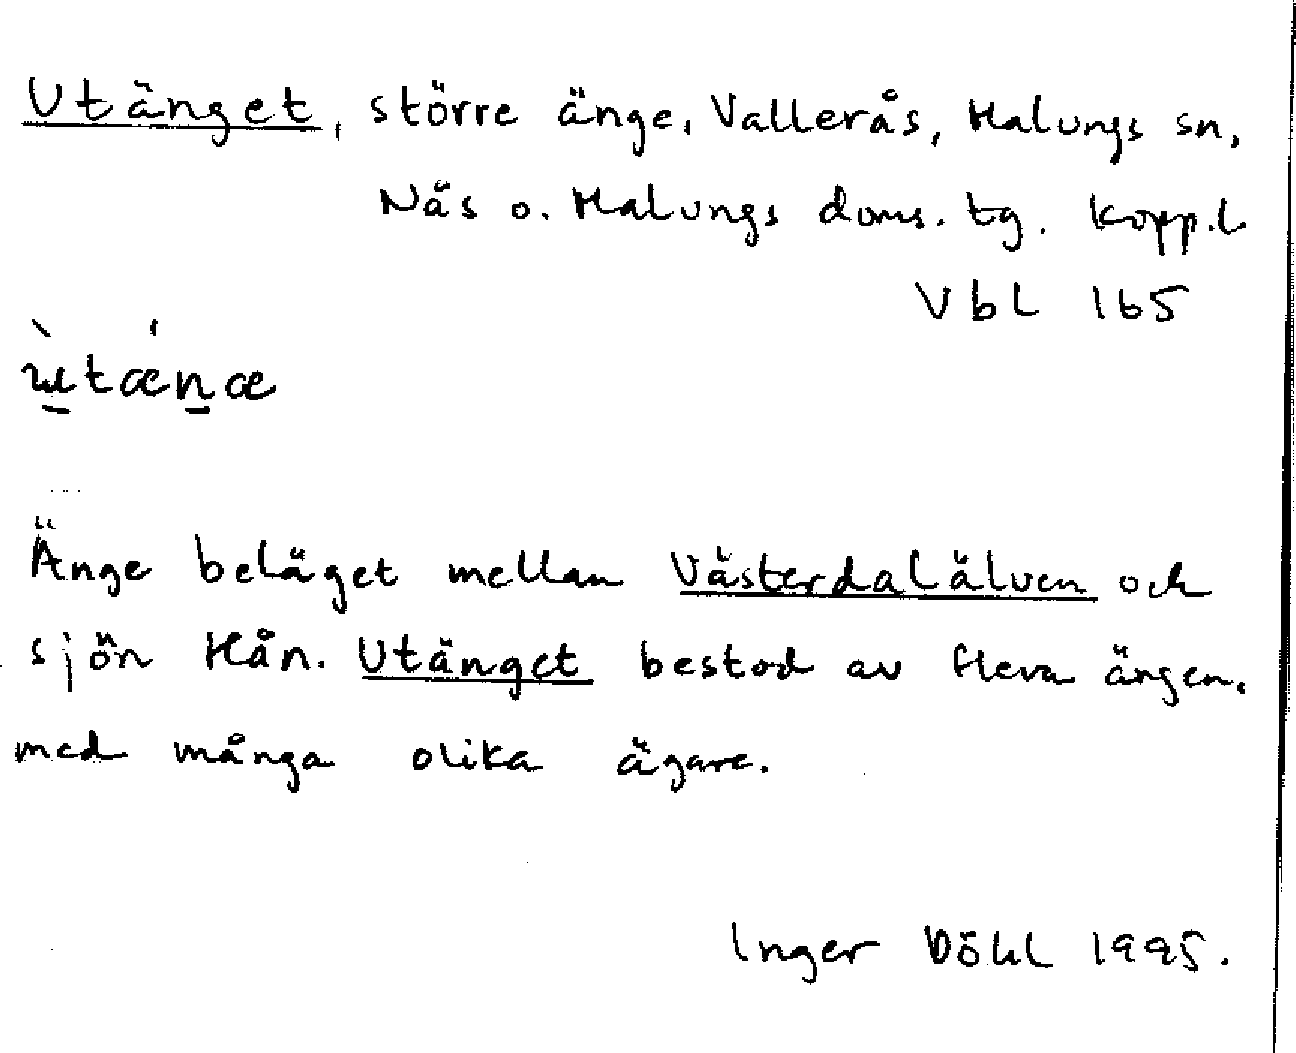 Utänget, större änge, Vallerås, Malungs sn,
Näs o. Malungs doms. tg. Kopp.l
Vbl 165
Änge beläget mellan Västerdalälven och
sjön Hån. Utänget bestod av flera ängen.
med många olika ägare.
Inger Döhl 1995.